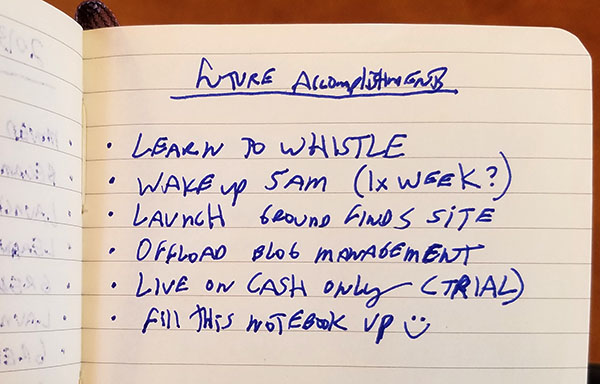 FUTURE ACCOMPLISHMENTS
• LEARN TO WHISTLE
• WAKE UP 5AM (1x WEEK?)
• LAUNCH GROUND FINDS SITE
• OFFLOAD BLOG MANAGEMENT
• LIVE ON CASH ONLY (TRIAL)
• FILL THIS NOTEBOOK UP ☺